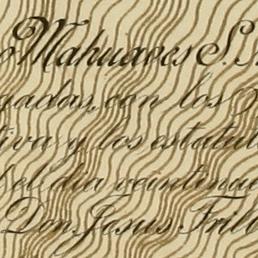 o Mahuaces S. A
gadas, con los
tiva y los estatut
el día veintinue
Don Jesus Trilo